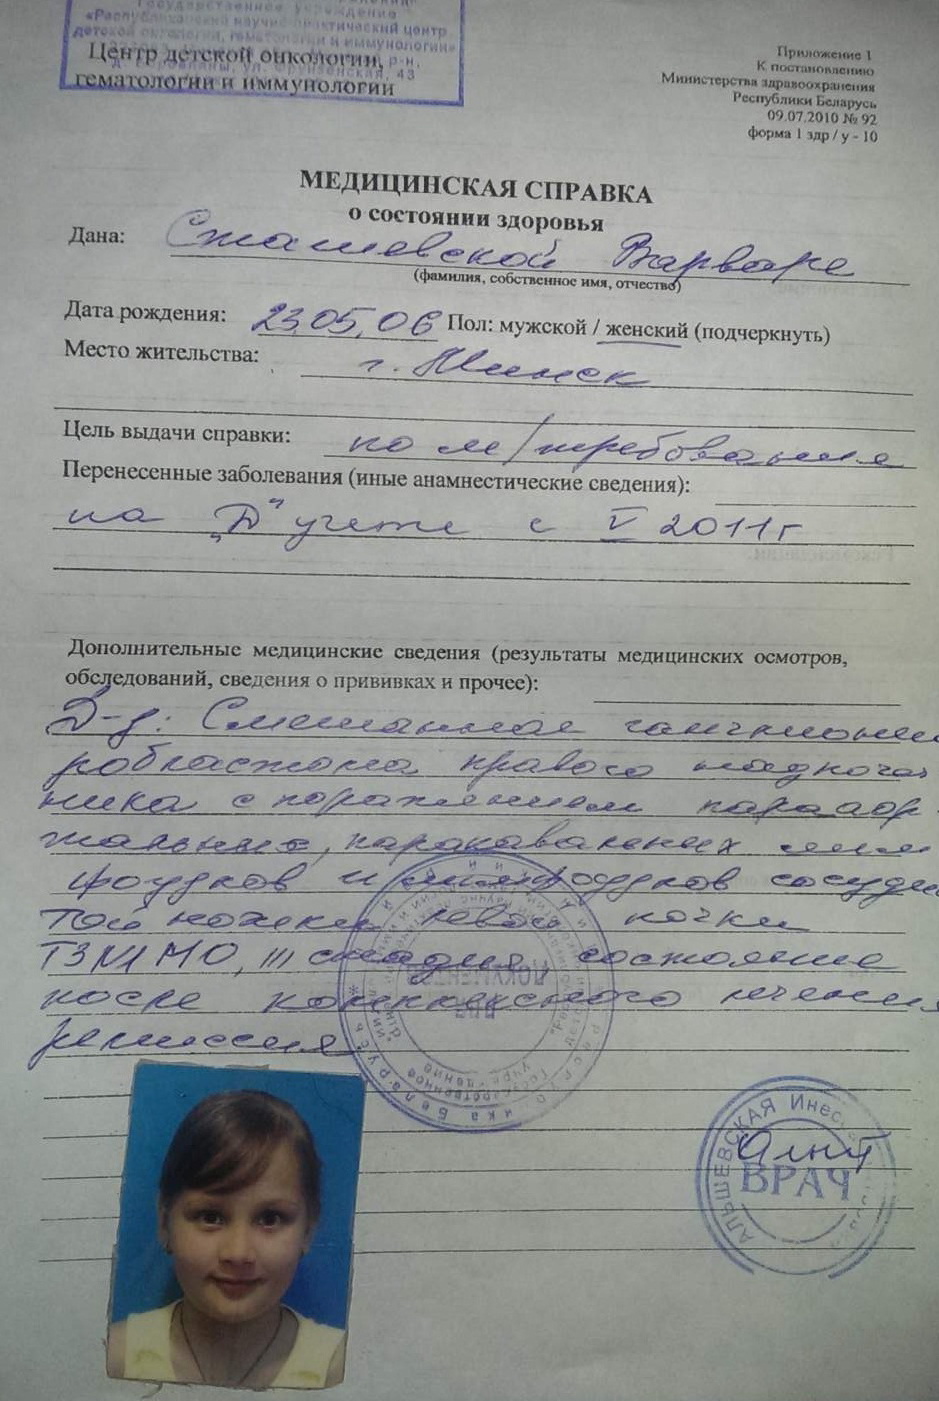 Государственное учреждение
«Республиканский научно-практический центр
детской онкологии, гематологии и иммунологии»
р-н,
43
Центр детской онкологии,
гематологии и иммунологии
Приложение 1
К постановлению
Министерства здравоохранения
Республики Беларусь
09.07.2010 № 92
форма 1 здр / у - 10
МЕДИЦИНСКАЯ СПРАВКА
о состоянии здоровья
Дана: Сташевской Варваре
(фамилия, собственное имя, отчество)
Дата рождения: 23.05.06 Пол: мужской / женский (подчеркнуть)
Место жительства: г. Минск
Цель выдачи справки: по м/требования
Перенесенные заболевания (иные анамнестические сведения):
на „Д" учете с V 2011г
Дополнительные медицинские сведения (результаты медицинских осмотров,
обследований, сведения о прививках и прочее):
Д-з: Смешанная ганглионе
робластома правого надпочеч
ника с поражением парааор
тальных, паракавальных лим
фоузлов и лимфоузлов сосудис
той ножки левой почки
T3N1M0, III стадия, состояние
после комплексного лечения
ремиссия
ВРАЧ
АЛЬШЕВСКАЯ